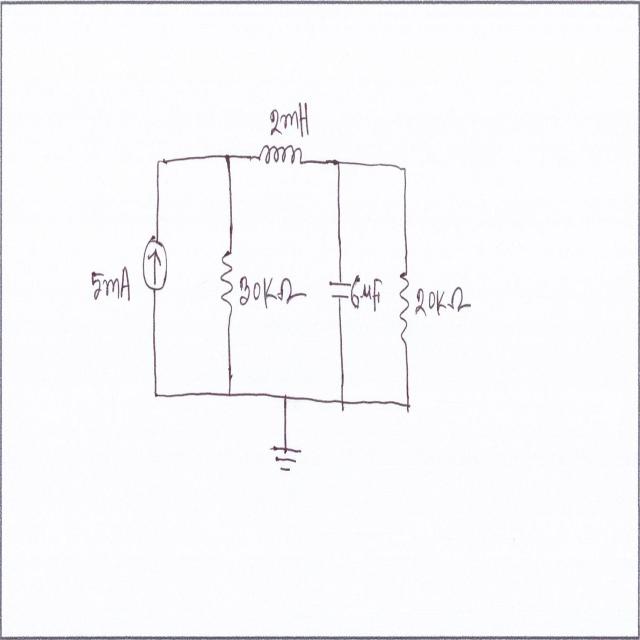 2mH
5mA
30KΩ
6μF
20KΩ